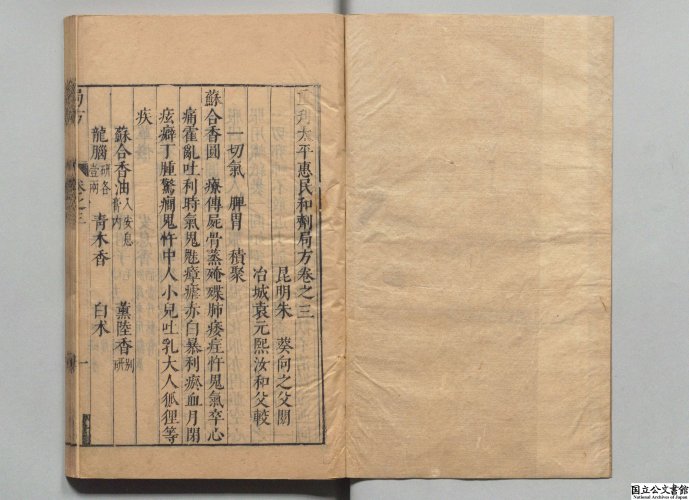 太平惠民和劑局方卷之三
昆明朱 葵向之父閱
冶城袁元熙汝和父較
一切氣 脾胃 積聚
蘇合香圓 療傳屍骨蒸殗殜肺痿疰忤鬼氣卒心
痛霍亂吐利時氣鬼魅瘴瘧赤白暴利瘀血月閉
痃癖丁腫驚癎鬼忤中人小兒吐乳大人狐狸等
疾
蘇合香油入安息膏內 薰陸香別研
龍腦研各壹兩 青木香 白术
局方 卷之三 一
国立公文書館
National Archives of Japan